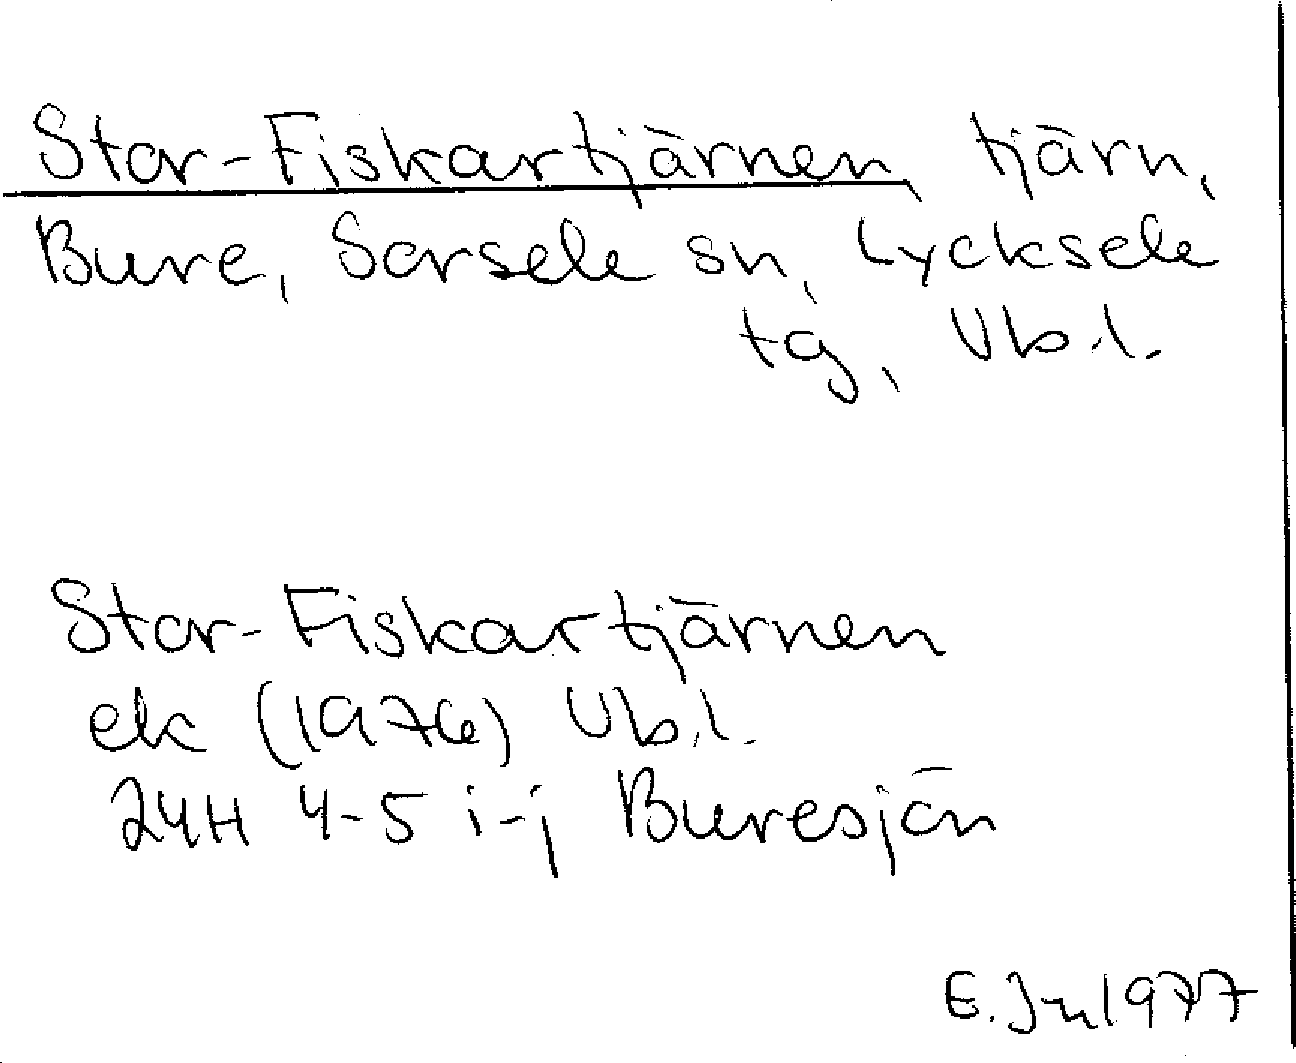 Stor-Fiskartjärnen, tjärn,
Bure, Sorsele sn, Lycksele
tg, Vb.l.
Stor-Fiskartjärnen
ek (1976) Vb.l.
24H 4-5 i-j Buresjön
E. Jn 1977